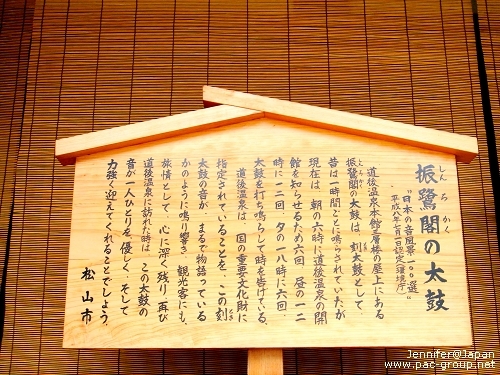 振鷺閣の太鼓
しんろかく
"日本の音風景一〇〇選"
平成八年七月一日認定（環境庁）
道後温泉本館三層楼の屋上にある
振鷺閣の太鼓は、刻太鼓として
昔は一時間ごとに鳴らされていたが
現在は、朝の六時に道後温泉の開
館を知らせるため六回、昼の一二
時に一二回、夕の一八時に六回、
太鼓を打ち鳴らして時を告げている。
道後温泉は、国の重要文化財に
指定されていることを、この刻
太鼓の音が、まるで物語っている
かのように鳴り響き、観光客にも、
旅情として、心に深く残り、再び
道後温泉に訪れた時は、この太鼓の
音が一人ひとりを優しく、そして
力強く迎えてくれることでしょう。
松山市
Jennifer@Japan
www.pac-group.net